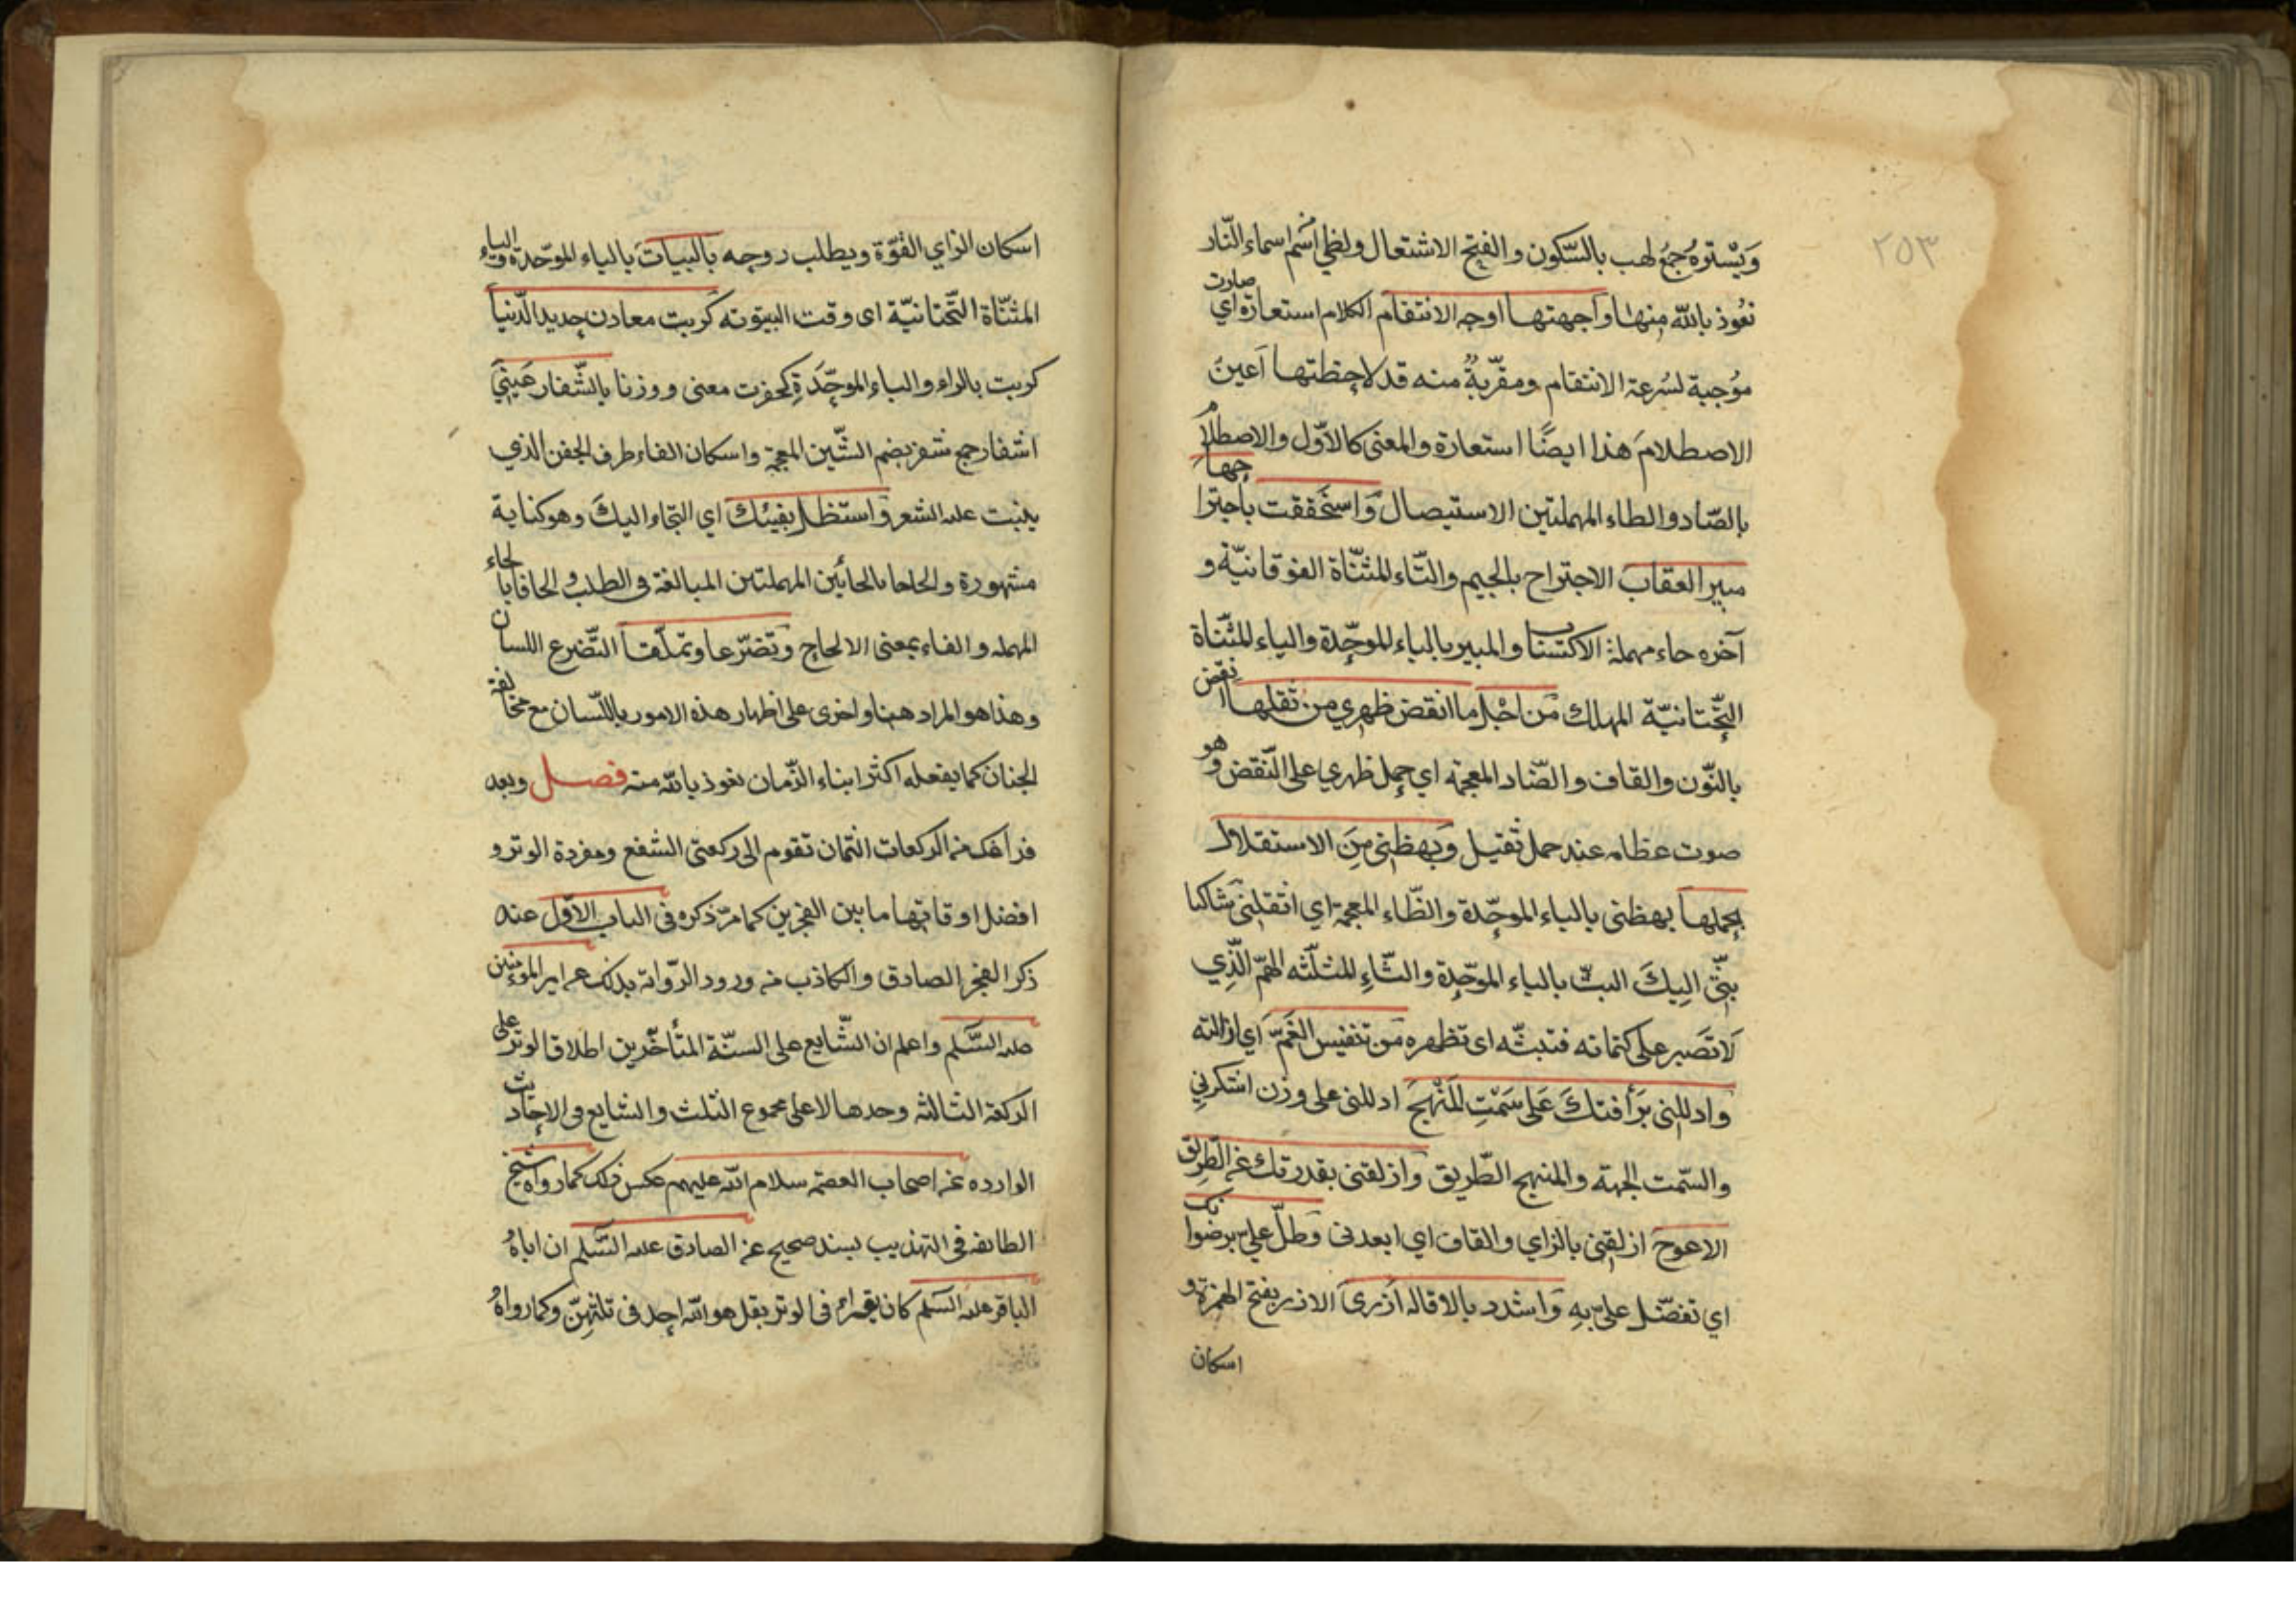 ٢٥٣
وَيَسْترهُ جمعُ لهب بالسّكون والفتح الاشتعال ولظي اسم من اسماء النّار
نعُوذ بالله منها واجهتها اوجه الانتقام الكلام استعارة اي صارت
موُجبة لسُرعة الانتقام ومقرّبةٌ منه قد لاحظتها اَعين
الاصطلامَ هذا ايضًا استعارة والمعنى كالاوّل والاصطلام
بالصّاد والطاء المهملتين الاستيصال وَاستحققت باجتراحها
مبير العقاب الاجتراح بالجيم والتّاء المثنّاة الفوقانيّة و
آخره حاء مهملة الاكتساب والمبير بالباء الموحّدة والياء المثنّاة
التّحتانيّة المهلك مَن اجْل ما انقض ظهري من ثقلها انقض
بالنّون والقاف والضّاد المعجمة اي حمل ظهري على النّقض وهو
صوت عظامه عند حمل ثقيل وَبهظني مِنَ الاستقلال
بحملها بهظني بالباء الموحّدة والظّاء المعجمة اي اثقلني شاكيا
بثّي اليكَ البثّ بالباء الموحّدة والثّاءِ المثلّثه الهمّ الّذِي
لَا تَصبر على كتمانه فتبثّه اى تظهره مَن تنفيس الغَمّ اي ازالته
وادللني برَأفتكَ عَلى سَمْتِ المَنْهج ادللنى على وزن اشكرني
والسّمت الجهة والمنهج الطّريق وَازلقنى بقدرتك عن الطّريق
الاعوج ازلقني بالزاي والقاف اي ابعدنى وَطلّ علي برضوانك
اي تفضّل علي به وَاشدد بالاقاله ازري الازر بفتح الهمزة و
اسكان
اسكان الزاي القوّة ويطلب روجه بالبيات بالباء الموحّدة والياء
المثنّاة التّحتانيّة اى وقت البيتوته كربت معادن حديد الدّنيا
كربت بالراء والباء الموحّدَةِ كحفرت معنى ووزنا بالشّفار هَيني
اشفار جمع شفر بضم الشّين المعجمة واسكان الفاء طرف الجفن الذي
ينبت عليه الشعر وَاستظل بفيئك اي التجاء اليكَ وهو كناية
مشهورة والحاحا بالحائين المهملتين المبالغة في الطلب والحافا بالحاء
المهمله والفاء بمعنى الالحاح وتضرّعا وتملّقا التّضرع اللسان
وهذا هو المراد هنا واخرى على اظهار هذه الامور باللّسان مع مخالفة
الجنان كما يفعله اكثر ابناء الزّمان نعوذ بالله منه فصل وبعد
فراغك من الركعات الثمان تقوم الى ركعتى الشفع ومفردة الوتر و
افضل اوقاتها ما بين الفجرين كما مرّ ذكره في الباب الاوّل عند
ذكر الفجر الصادق والكاذب من ورود الرّواية بذلك عن امير المؤمنين
عليه السّلم واعلم ان الشّايع على السنّة المتأخّرين اطلاق الوتر على
الركعة الثالثه وحدها لا على مجموع الثلث والشايع في الاحاديث
الوارده عن اصحاب العصمة سلام الله عليهم عكس ذلك كما رواه شيخ
الطائفه في التهذيب بسند صحيح عن الصادق عليه السّلم ان اباهُ
الباقر عليه السّلم كان يقراء في الوتر بقل هو الله احد في ثلثهنّ وكما رواهُ